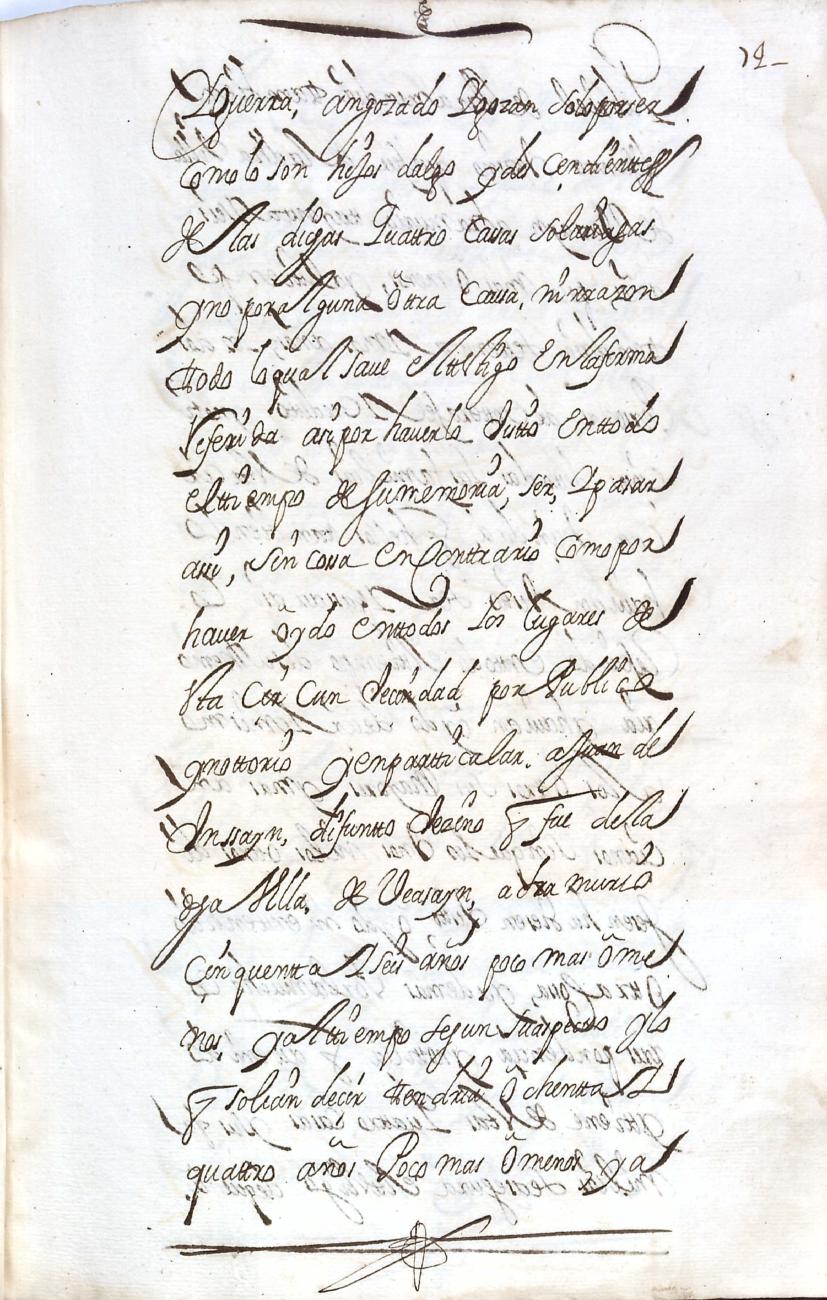 12
Y guerra, an gozado Y gozan solo por ser
Como lo son hijos dalgo y des Cendienttes
de llas dichas Quattro Casas solariegas
y no por alguna ottra Causa, ni rrazon
ttodo lo qual save el testigo En la forma
Referida asi por haverlo Vistto En ttodo
el ttiempo de su memoria, ser, Y pasar
asi, sin cosa en Conttrario Como por
haver oydo en ttodos los lugares de
Sta Cir Cun Vecindad, por Publico
y nottorio y en partticular. a Juan de
Inssayn, difuntto Vezino q fue de la
Villa, de Veasayn, abra murio
Cin quentta Y seis años poco mas ô me
nos, y al ttiempo segun su aspecto y lo
q solian decir ttendria ôchentta Y
quattro años Poco mas ô menos y a